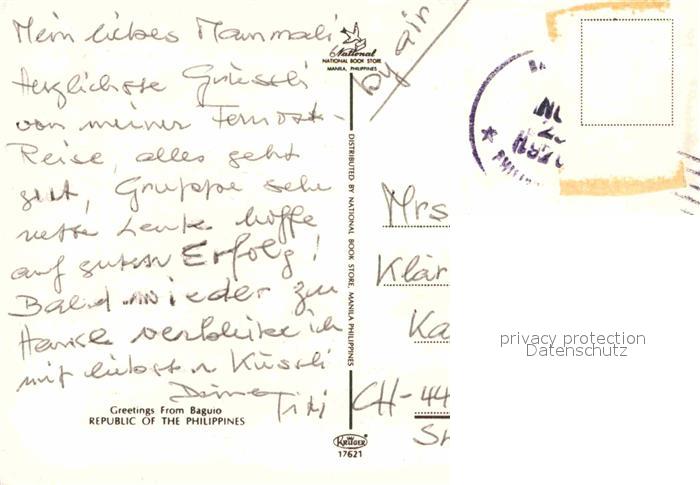 Mein liebes Mammali
Herzlichste Grüessli
von meiner Fernost-
Reise, alles geht
gut, Gruppe sehr
nette Leute hoffe
auf guten Erfolg!
Bald wieder zu
Hause verbleibe ich
mit liebsten Küssli
Titi
Greetings From Baguio
REPUBLIC OF THE PHILIPPINES
National
NATIONAL BOOK STORE
MANILA, PHILIPPINES
by air
DISTRIBUTED BY NATIONAL BOOK STORE, MANILA, PHILIPPINES
KRÜGER
17621
Mrs
Klär
Ka
CH-44
privacy protection
Datenschutz